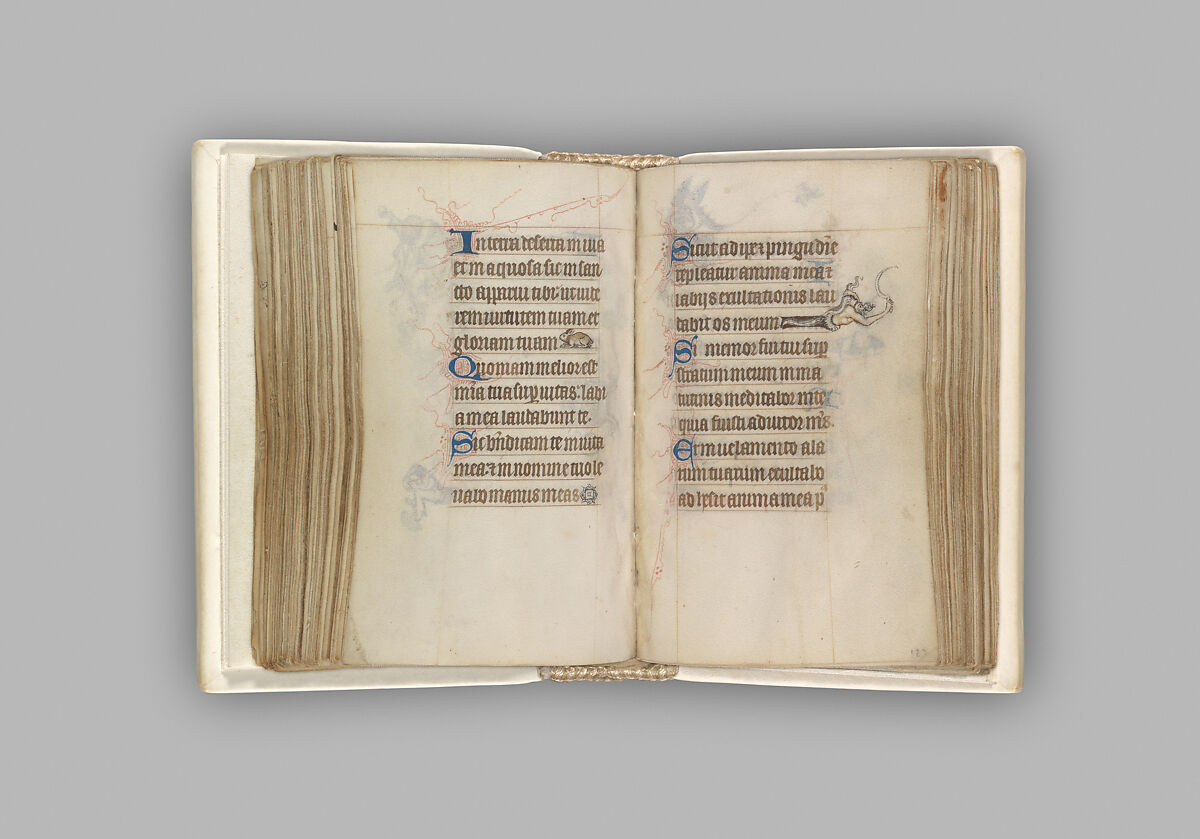 In terra deserta in uia
et in aquosa sic in san
cto apparui tibi: ut uide
rem uirtutem tuam et
gloriam tuam
Quoniam melior est
mīa tua sup uitas: labi
a mea laudabunt te.
Sic bn̄dicam te in uita
mea: ⁊ in nomine tuo le
uabo manus meas
Sicut adipe ⁊ pingudīe
repleatur anima mea: ⁊
labijs exultationis lau
dabit os meum
Si memor fui tui sup
stratum meum in ma
tutinis meditabor in te:
quia fuisti adiutor m̄s.
Et in uelamento ala
rum tuarum exultabo
adhesit anima mea pᵗ
123